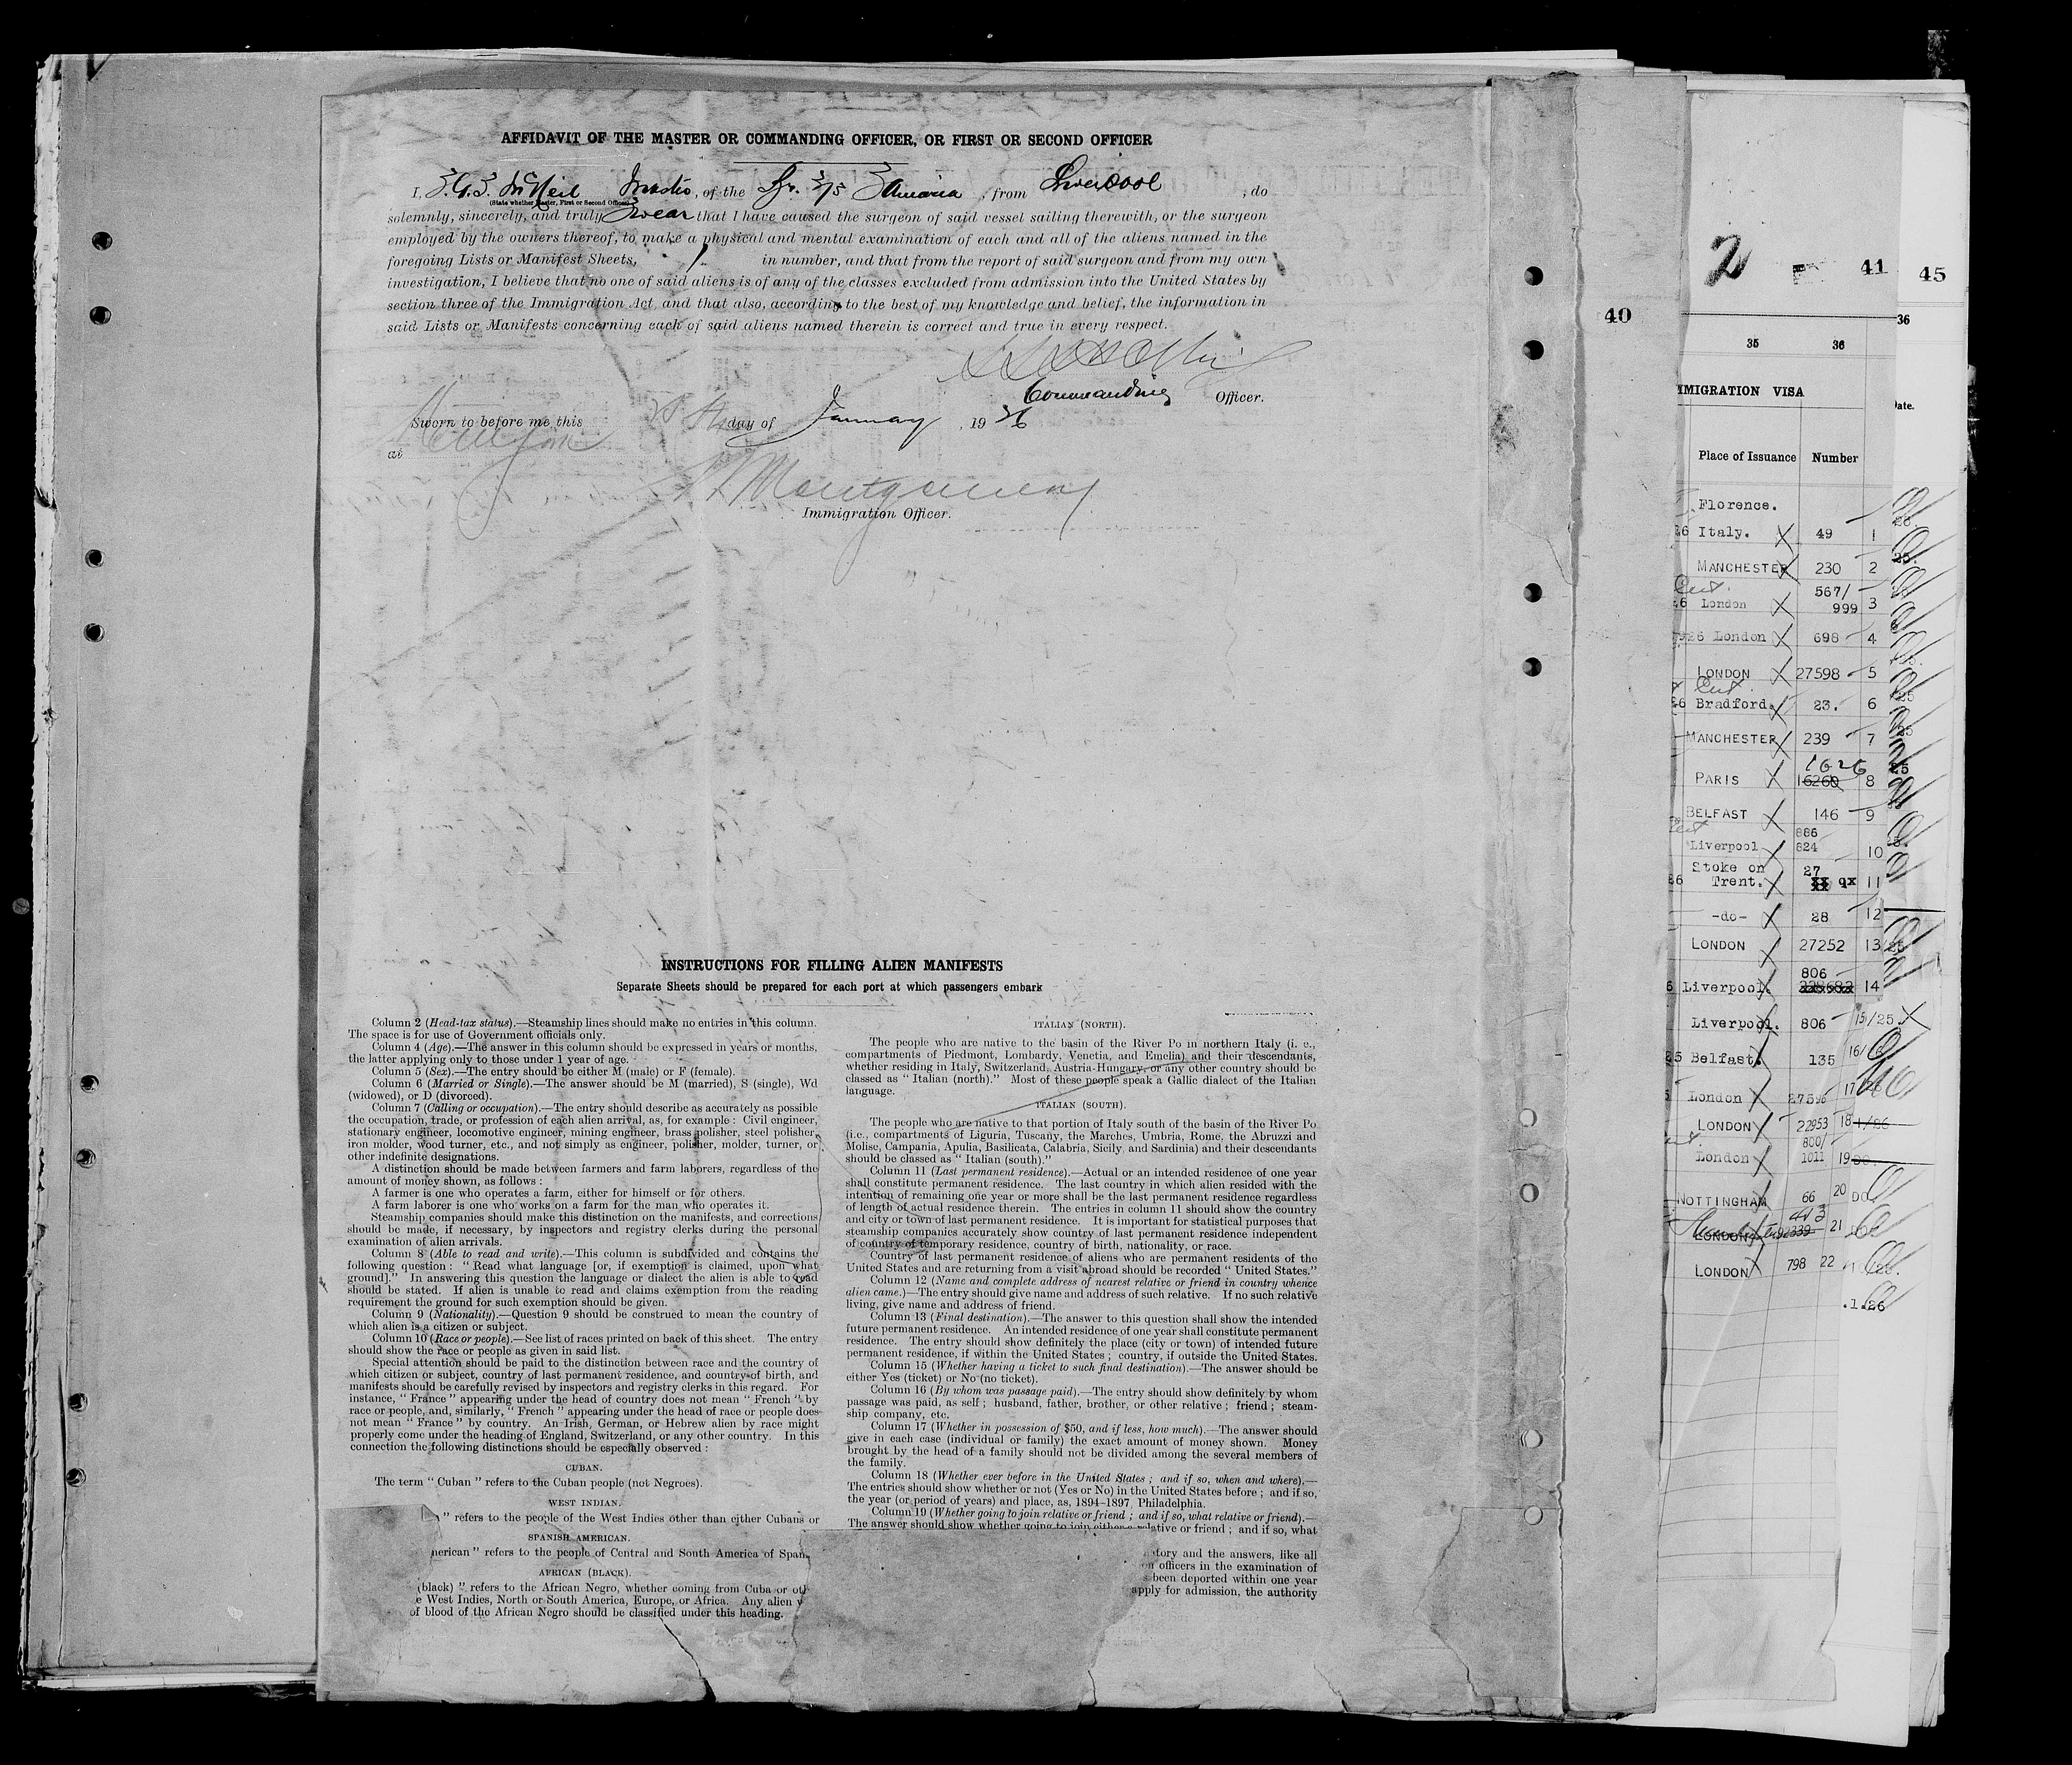 AFFIDAVIT OF THE MASTER OR COMMANDING OFFICER, OR FIRST OR SECOND OFFICER
I, McNeil Master, of the Br. S/S , from Liverpool, do
(State whether Master, First or Second Officer)
solemnly, sincerely, and truly swear that I have caused the surgeon of said vessel sailing therewith, or the surgeon
employed by the owners thereof, to make a physical and mental examination of each and all of the aliens named in the
foregoing Lists or Manifest Sheets, 1 in number, and that from the report of said surgeon and from my own
investigation, I believe that no one of said aliens is of any of the classes excluded from admission into the United States by
section three of the Immigration Act, and that also, according to the best of my knowledge and belief, the information in
said Lists or Manifests concerning each of said aliens named therein is correct and true in every respect.
Commanding Officer.
Sworn to before me this day of January, 1926
at
Montgomery
Immigration Officer.
INSTRUCTIONS FOR FILLING ALIEN MANIFESTS
Separate Sheets should be prepared for each port at which passengers embark
Column 2 (Head-tax status).—Steamship lines should make no entries in this column.
The space is for use of Government officials only.
Column 4 (Age).—The answer in this column should be expressed in years or months,
the latter applying only to those under 1 year of age.
Column 5 (Sex).—The entry should be either M (male) or F (female).
Column 6 (Married or Single).—The answer should be M (married), S (single), Wd
(widowed), or D (divorced).
Column 7 (Calling or occupation).—The entry should describe as accurately as possible
the occupation, trade, or profession of each alien arrival, as, for example : Civil engineer,
stationary engineer, locomotive engineer, mining engineer, brass polisher, steel polisher,
iron molder, wood turner, etc., and not simply as engineer, polisher, molder, turner, or
other indefinite designations.
A distinction should be made between farmers and farm laborers, regardless of the
amount of money shown, as follows :
A farmer is one who operates a farm, either for himself or for others.
A farm laborer is one who works on a farm for the man who operates it.
Steamship companies should make this distinction on the manifests, and corrections
should be made, if necessary, by inspectors and registry clerks during the personal
examination of alien arrivals.
Column 8 (Able to read and write).—This column is subdivided and contains the
following question : " Read what language [or, if exemption is claimed, upon what
ground]." In answering this question the language or dialect the alien is able to read
should be stated. If alien is unable to read and claims exemption from the reading
requirement the ground for such exemption should be given.
Column 9 (Nationality).—Question 9 should be construed to mean the country of
which alien is a citizen or subject.
Column 10 (Race or people).—See list of races printed on back of this sheet. The entry
should show the race or people as given in said list.
Special attention should be paid to the distinction between race and the country of
which citizen or subject, country of last permanent residence, and country of birth, and
manifests should be carefully revised by inspectors and registry clerks in this regard. For
instance, " France " appearing under the head of country does not mean " French " by
race or people, and, similarly, " French " appearing under the head of race or people does
not mean " France " by country. An Irish, German, or Hebrew alien by race might
properly come under the heading of England, Switzerland, or any other country. In this
connection the following distinctions should be especially observed :
CUBAN.
The term " Cuban " refers to the Cuban people (not Negroes).
WEST INDIAN.
" refers to the people of the West Indies other than either Cubans or
SPANISH AMERICAN.
merican " refers to the people of Central and South America of Span
AFRICAN (BLACK).
(black) " refers to the African Negro, whether coming from Cuba or ot
e West Indies, North or South America, Europe, or Africa. Any alien
of blood of the African Negro should be classified under this heading.
ITALIAN (NORTH).
The people who are native to the basin of the River Po in northern Italy (i. e.,
compartments of Piedmont, Lombardy, Venetia, and Emelia) and their descendants,
whether residing in Italy, Switzerland, Austria-Hungary, or any other country should be
classed as " Italian (north)." Most of these people speak a Gallic dialect of the Italian
language.
ITALIAN (SOUTH).
The people who are native to that portion of Italy south of the basin of the River Po
(i.e., compartments of Liguria, Tuscany, the Marches, Umbria, Rome, the Abruzzi and
Molise, Campania, Apulia, Basilicata, Calabria, Sicily, and Sardinia) and their descendants
should be classed as " Italian (south)."
Column 11 (Last permanent residence).—Actual or an intended residence of one year
shall constitute permanent residence. The last country in which alien resided with the
intention of remaining one year or more shall be the last permanent residence regardless
of length of actual residence therein. The entries in column 11 should show the country
and city or town of last permanent residence. It is important for statistical purposes that
steamship companies accurately show country of last permanent residence independent
of country of temporary residence, country of birth, nationality, or race.
Country of last permanent residence of aliens who are permanent residents of the
United States and are returning from a visit abroad should be recorded " United States."
Column 12 (Name and complete address of nearest relative or friend in country whence
alien came.)—The entry should give name and address of such relative. If no such relative
living, give name and address of friend.
Column 13 (Final destination).—The answer to this question shall show the intended
future permanent residence. An intended residence of one year shall constitute permanent
residence. The entry should show definitely the place (city or town) of intended future
permanent residence, if within the United States ; country, if outside the United States.
Column 15 (Whether having a ticket to such final destination).—The answer should be
either Yes (ticket) or No (no ticket).
Column 16 (By whom was passage paid).—The entry should show definitely by whom
passage was paid, as self ; husband, father, brother, or other relative ; friend ; steam-
ship company, etc.
Column 17 (Whether in possession of $50, and if less, how much).—The answer should
give in each case (individual or family) the exact amount of money shown. Money
brought by the head of a family should not be divided among the several members of
the family.
Column 18 (Whether ever before in the United States ; and if so, when and where).—
The entries should show whether or not (Yes or No) in the United States before ; and if so,
the year (or period of years) and place, as, 1894-1897, Philadelphia.
Column 19 (Whether going to join relative or friend ; and if so, what relative or friend).—
The answer should show whether going to join either a relative or friend ; and if so, what
tory and the answers, like all
on officers in the examination of
been deported within one year
apply for admission, the authority
40
2 41
45
35 36
36
MMIGRATION VISA
Date.
Place of Issuance Number
Florence.
26 Italy. X 49 1
MANCHESTER X 230 2
567/
26 London X 999 3
1926 London X 698 4
LONDON X 27598 5
26 Bradford. X 23. 6
MANCHESTER X 239 7
1626
PARIS X 16260 8
BELFAST X 146 9
886
Liverpool X 824 10
Stoke on 27
26 Trent. X 11
-do- X 28 12
LONDON X 27252 13
806
6 Liverpool. X 14
Liverpool. 806 15/25 X
25 Belfast. 135 16/
London X 27596 17
LONDON X 22953 18
800/
London X 1011 19
NOTTINGHAM 66 20 DO
LONDON 92339 21
LONDON X 798 22
.1.26